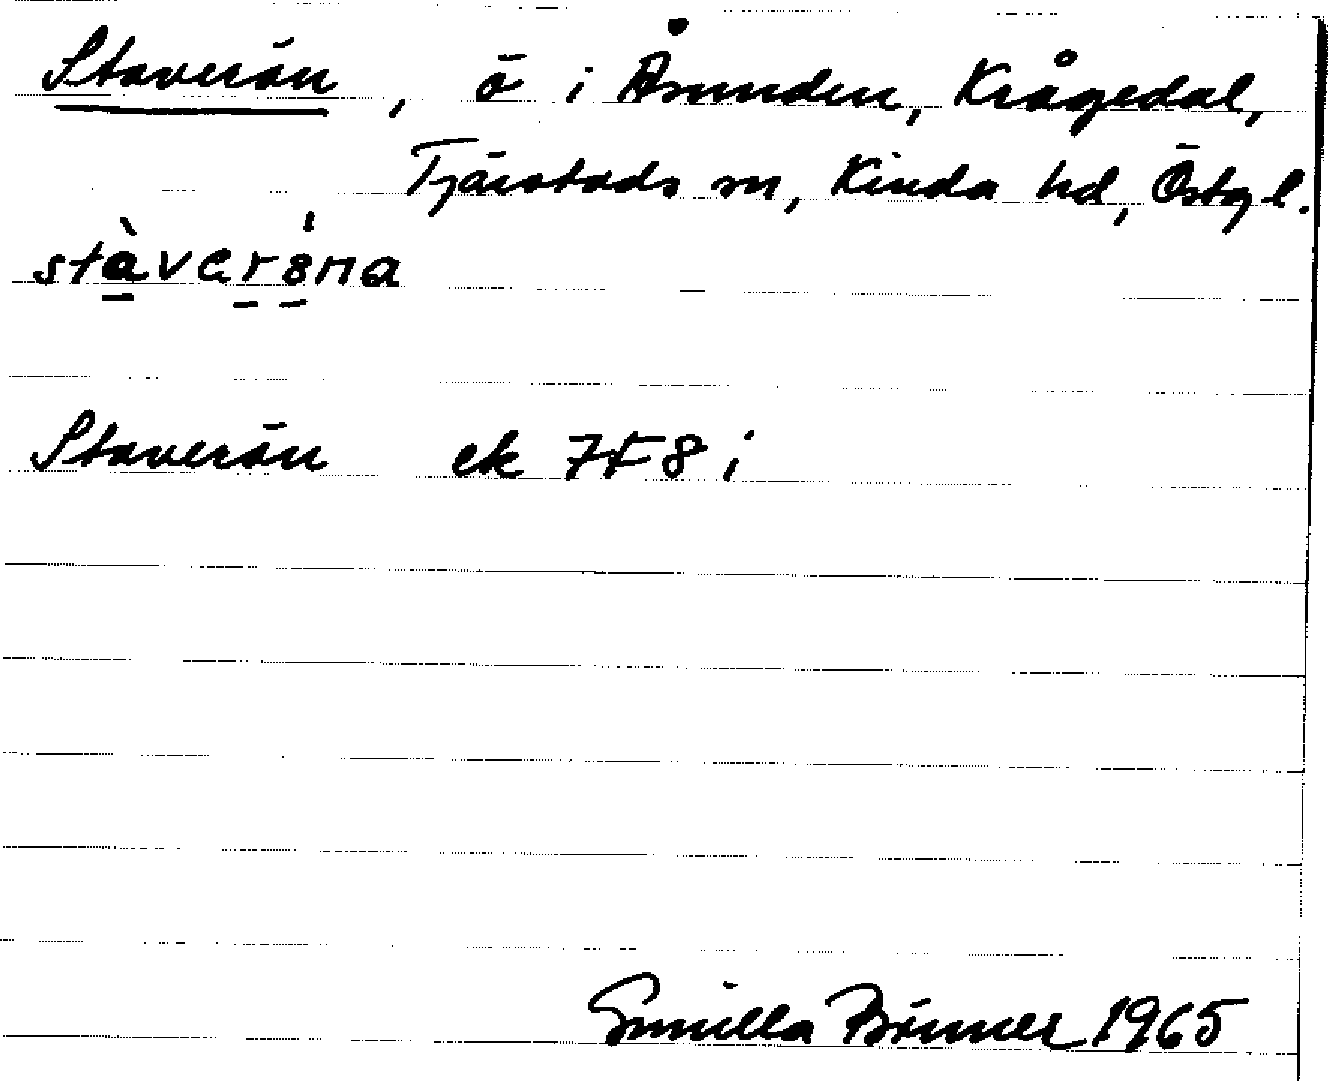 Staverön, ö i Åsunden, Krågedal,
Tjärstads sn, Kinda hd, Östgl.
stàverö́na
Staverön ek 7F8i
Gunilla Brinner 1965